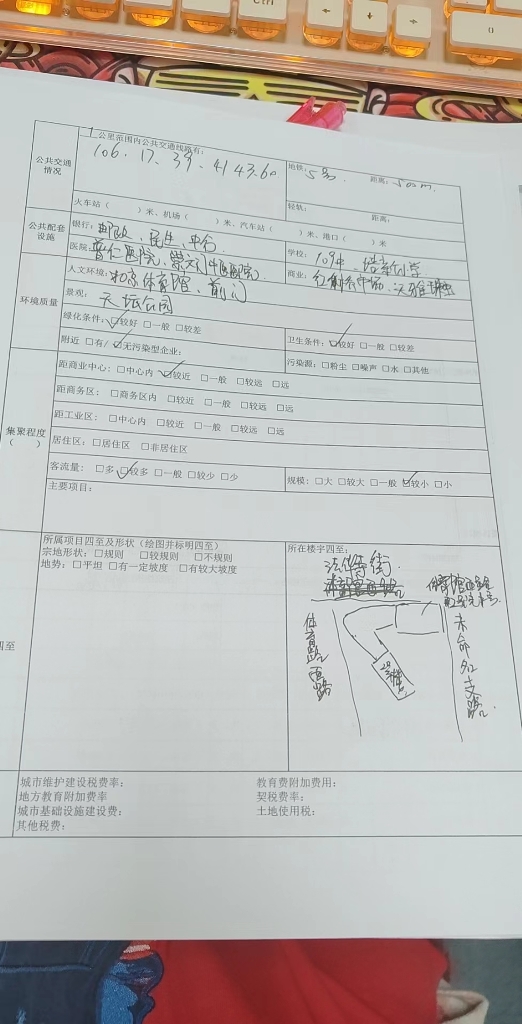 Ctrl
公共交通情况
1公里范围内公共交通线路有:
106、17、39、41 43.60
地铁: 5号. 距离: 500m.
火车站( )米、机场( )米、汽车站( )米、港口( )米
轻轨: 距离:
公共配套设施
银行: 邮政、民生、中信
学校: 109中、培新小学
医院: 普仁医院、崇文门中医医院
商业: 红桥市场、天雅
环境质量
人文环境: 北京体育馆、前门
景观: 天坛公园
绿化条件: ☑较好 □一般 □较差
卫生条件: ☑较好 □一般 □较差
附近 □有/☑无污染型企业:
污染源: □粉尘 □噪声 □水 □其他
集聚程度( )
距商业中心: □中心内 ☑较近 □一般 □较远 □远
距商务区: □商务区内 □较近 □一般 □较远 □远
距工业区: □中心内 □较近 □一般 □较远 □远
居住区: □居住区 □非居住区
客流量: □多 ☑较多 □一般 □较少 □少
规模: □大 □较大 □一般 ☑较小 □小
主要项目:
四至
所属项目四至及形状(绘图并标明四至)
宗地形状: □规则 □较规则 □不规则
地势: □平坦 □有一定坡度 □有较大坡度
所在楼宇四至:
法华寺街
体育馆西路
未命名支路
城市维护建设税费率:
教育费附加费用:
地方教育附加费率
契税费率:
城市基础设施建设费:
土地使用税:
其他税费: